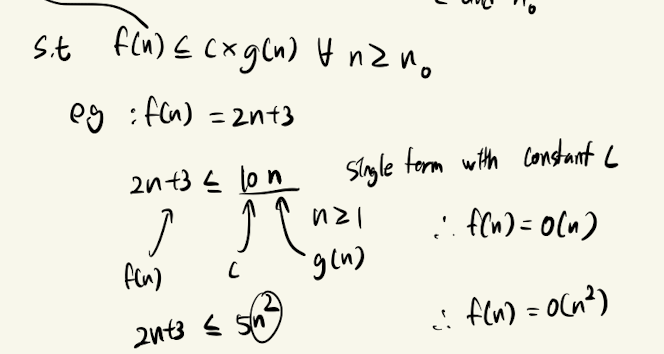 and n₀
s.t f(n) ≤ c×g(n) ∀ n ≥ n₀
eg : f(n) = 2n+3
2n+3 ≤ 10 n single term with constant c
n ≥ 1 ∴ f(n) = O(n)
f(n) c g(n)
2n+3 ≤ 5n² ∴ f(n) = O(n²)